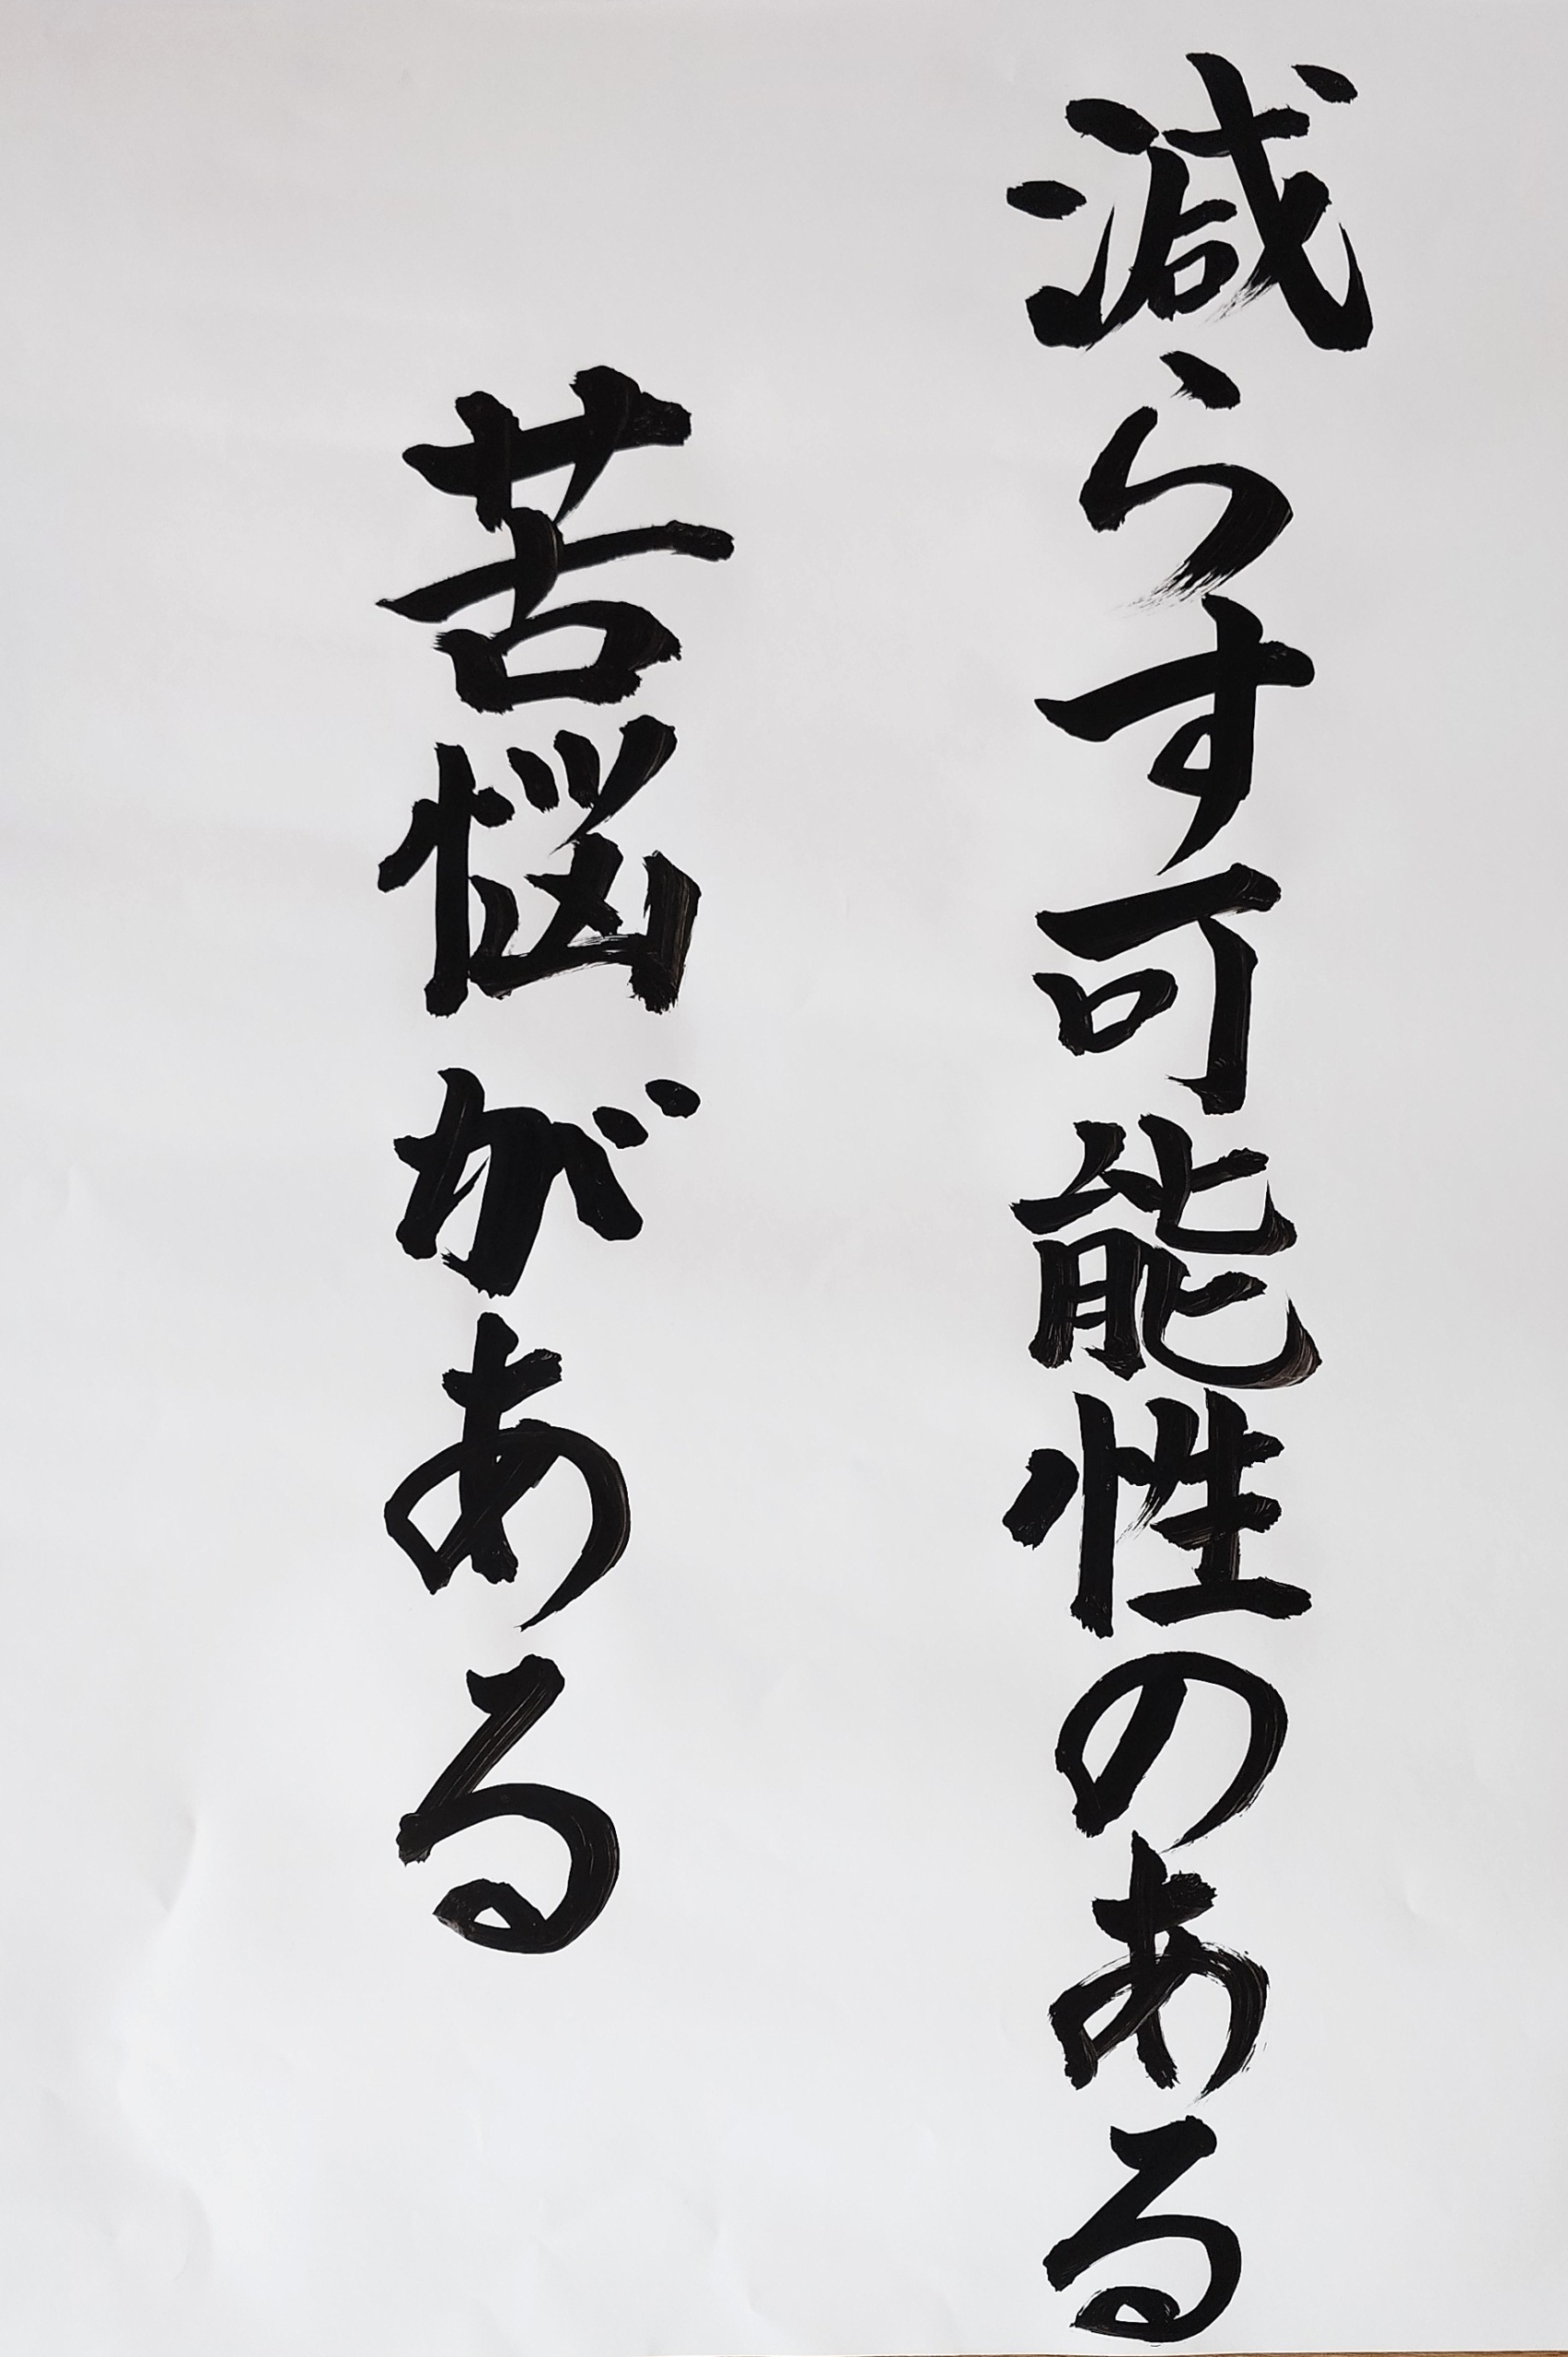 減らす可能性のある
苦悩がある